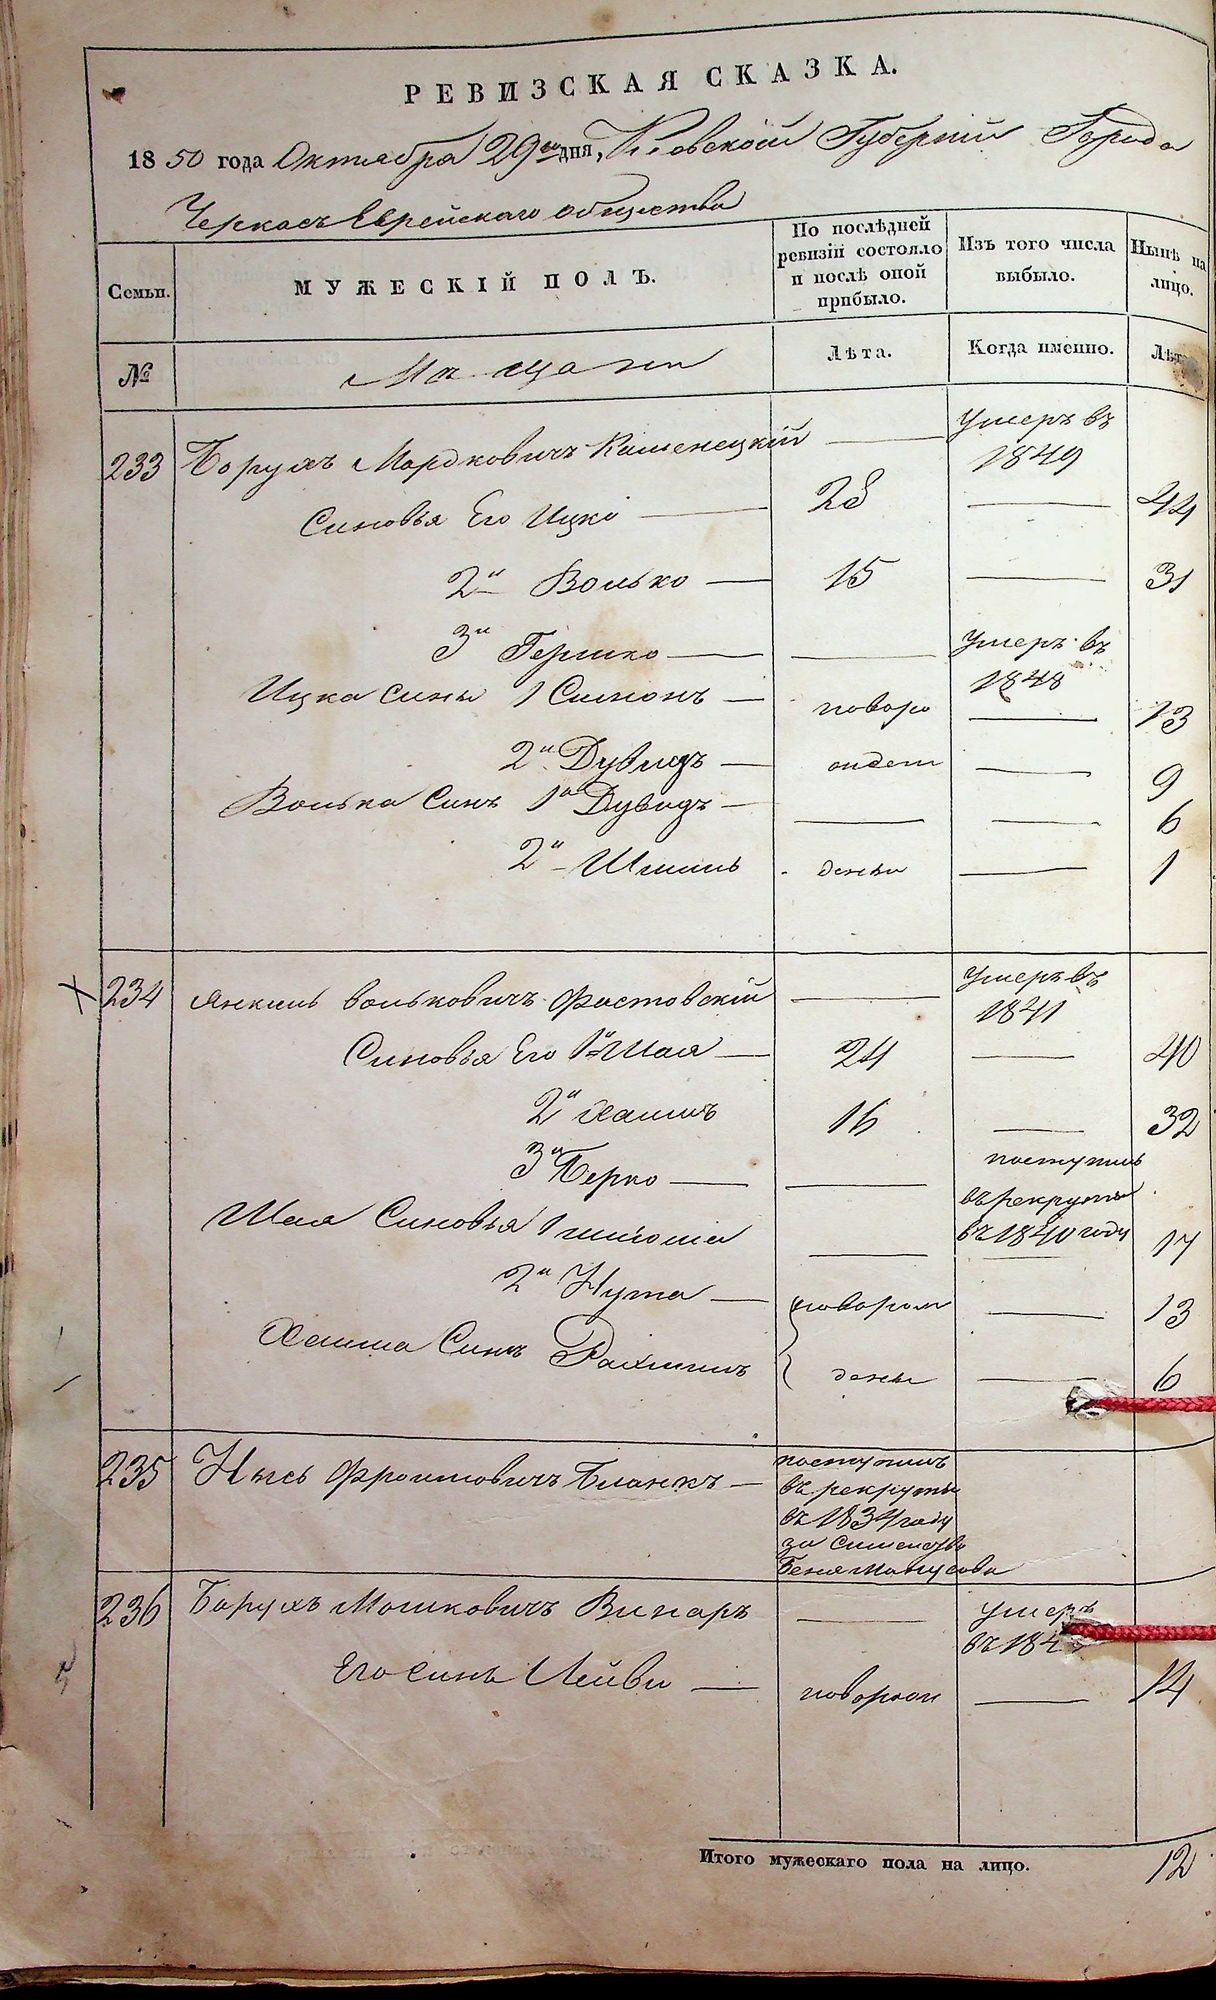 РЕВИЗСКАЯ СКАЗКА.
1850 года Октября 29го дня, Киевской Губернии Города
Черкасъ Еврейскаго общества
Семьи. МУЖЕСКІЙ ПОЛЪ. По послѣдней ревизіи состояло и послѣ оной прибыло. Изъ того числа выбыло. Нынѣ на лицо.
№ Мѣщане Лѣта. Когда именно. Лѣта
233 Борухъ Мордковичъ Каменецкій — Умеръ въ 1849
Синовья Его Ицко — 28 — 44
2й Волько — 15 — 31
3й Гершко — — Умеръ въ 1848
Ицка Сины 1 Симонъ — новоро — 13
2й Дувидъ — — 9
Волька Синъ 1й Дувидъ — — — 6
2й — дены — 1
234 Янкель Вольковичъ Фастовскій — Умеръ въ 1841
Синовья Его 1й Шая — 24 — 40
2й Хаимъ 16 — 32
3й Берко — — поступилъ въ рекруты въ 1840 году
Шая Синовья 1 — — 17
2й Нута — новорож — 13
Хаима Синъ Рахмиль дены — 6
235 Нысь Фроимовичъ Бланкъ — поступилъ въ рекруты въ 1834 году за
236 Борухъ Мошковичъ Винаръ — Умеръ въ 184
Его синъ Лейви — новорож — 14
Итого мужескаго пола на лицо. 12